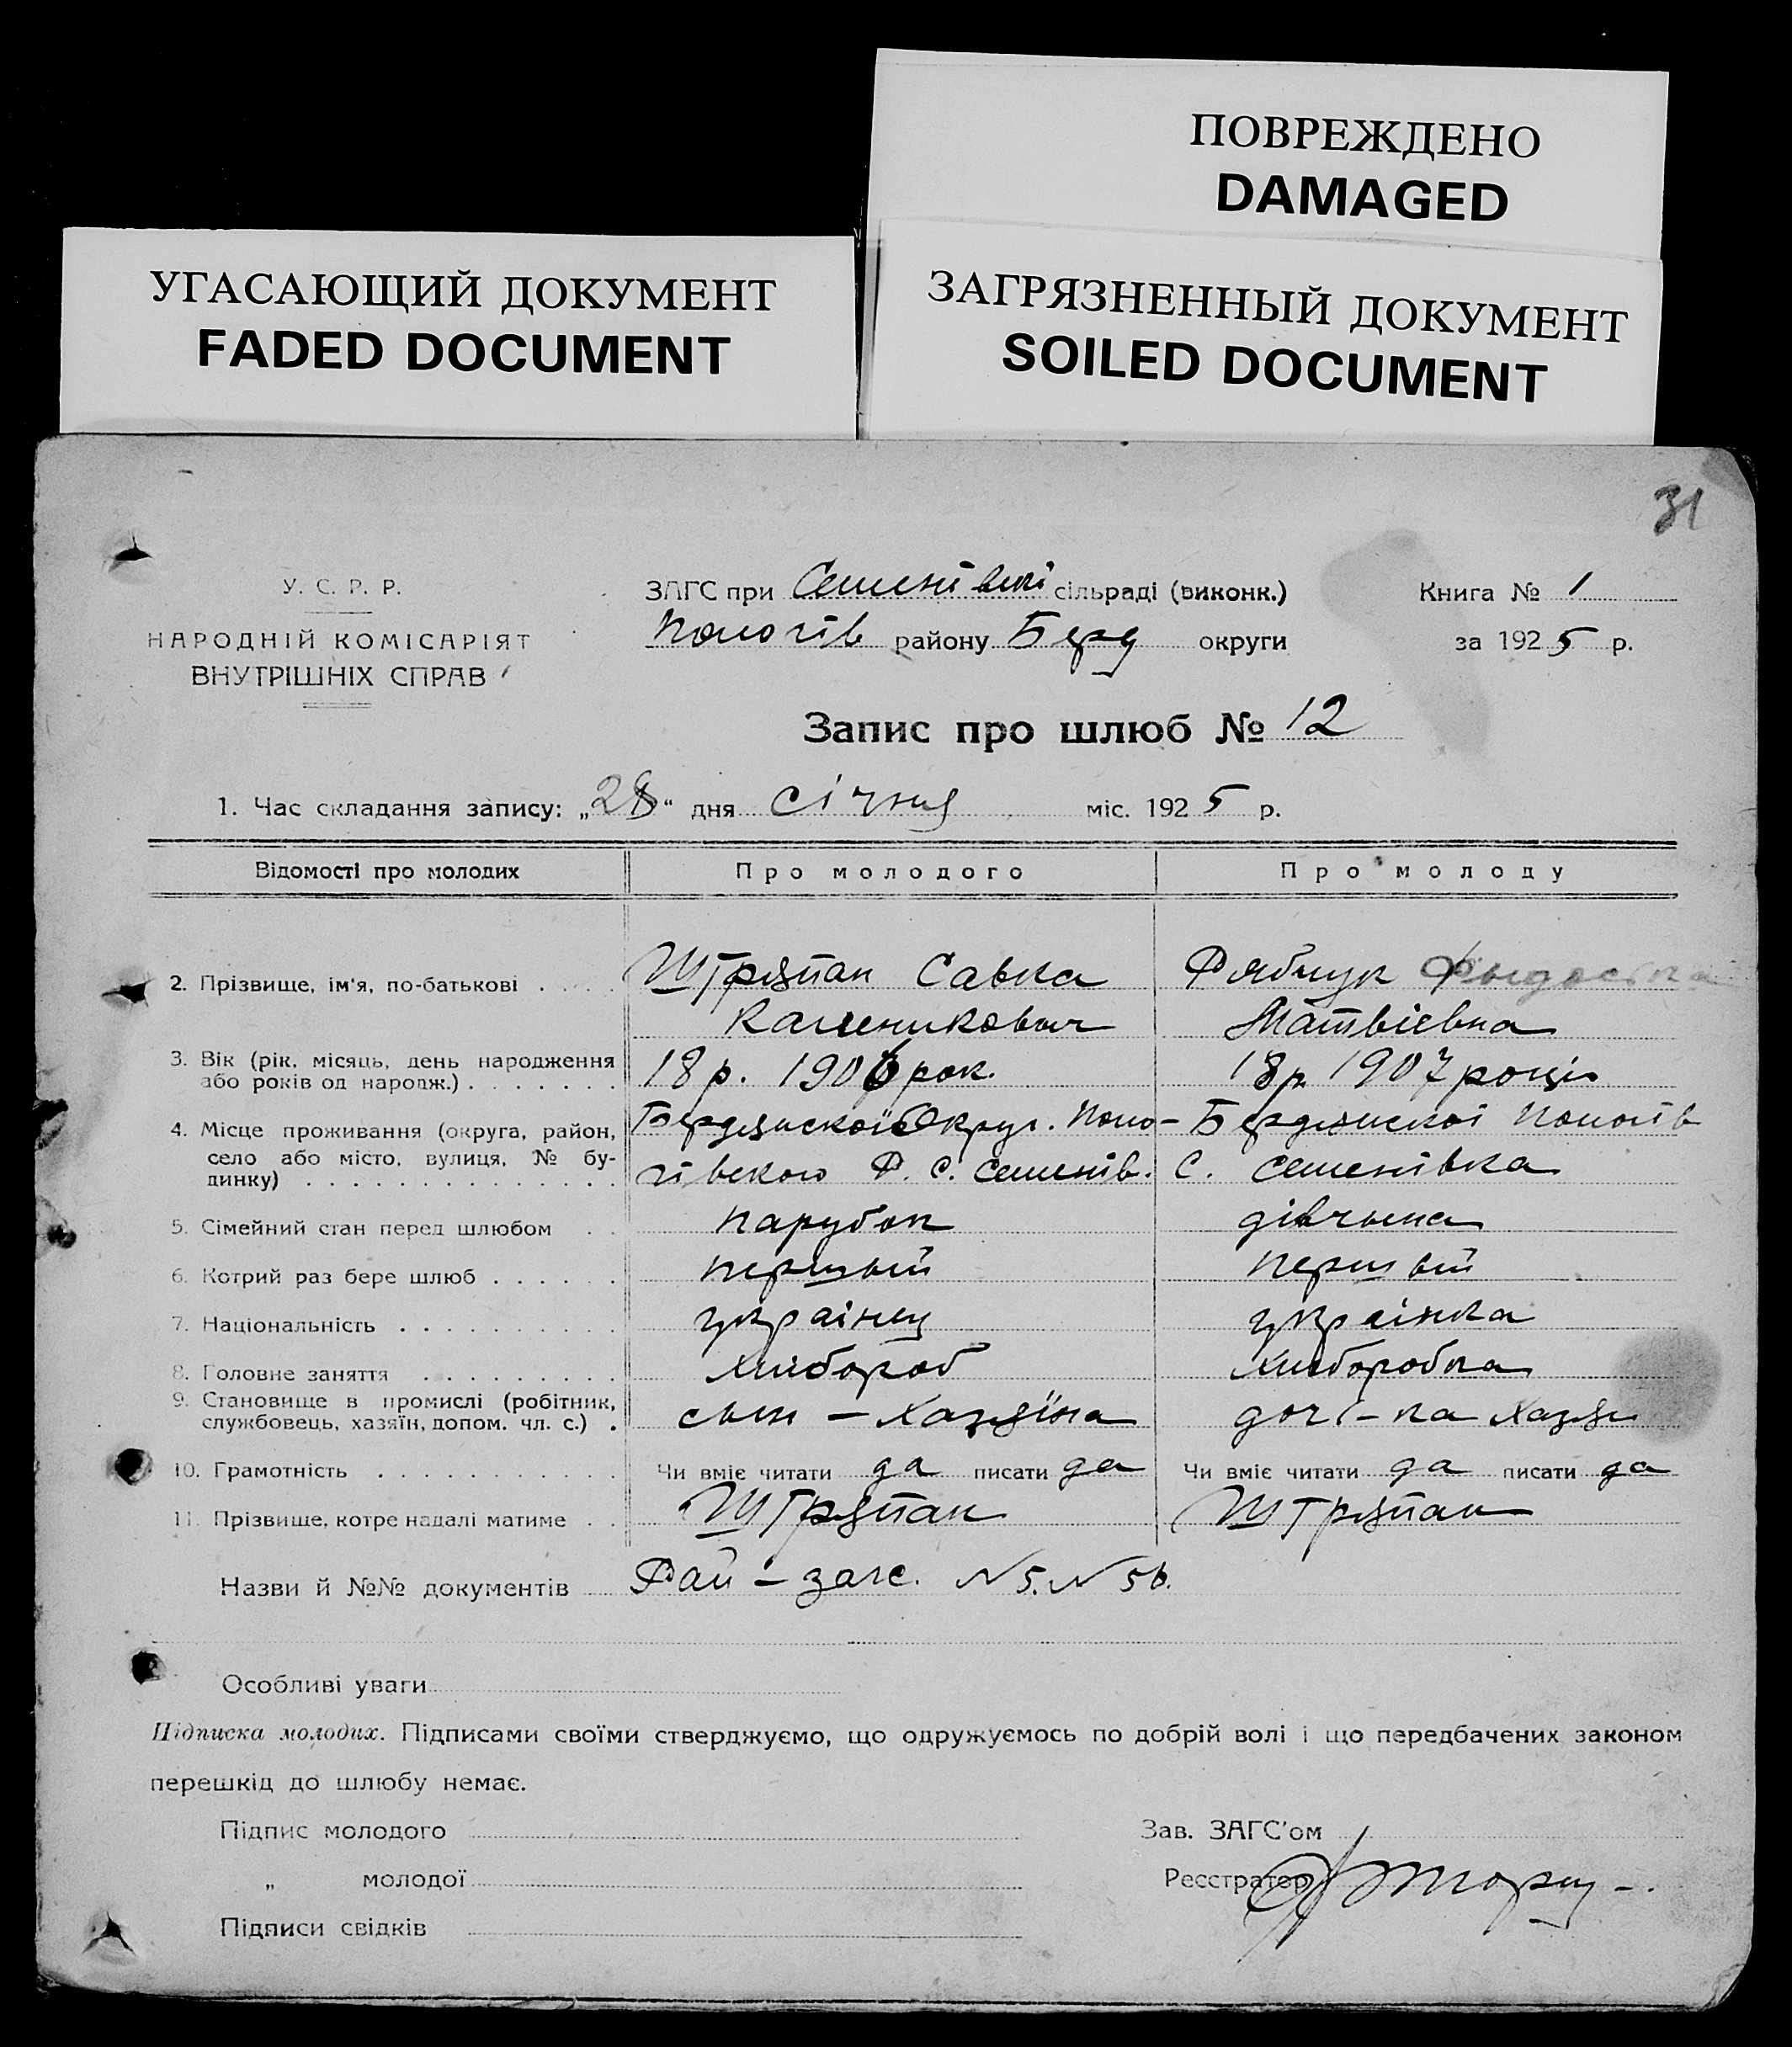 ПОВРЕЖДЕНО
DAMAGED
УГАСАЮЩИЙ ДОКУМЕНТ
FADED DOCUMENT
ЗАГРЯЗНЕННЫЙ ДОКУМЕНТ
SOILED DOCUMENT
31
У. С. Р. Р.
НАРОДНІЙ КОМІСАРІЯТ
ВНУТРІШНІХ СПРАВ
ЗАГС при Семенівскі сільраді (виконк.)
Пологів району Берд округи
Книга № 1
за 1925 р.
Запис про шлюб № 12
1. Час складання запису: „28“ дня січня міс. 1925 р.
Відомості про молодих Про молодого Про молоду
2. Прізвище, ім'я, по-батькові . . . . Штряпан Савка Рябчук
Калєникович Матвієвна
3. Вік (рік, місяць, день народження
або років од народж.) . . . . . . . 18 р. 1906 рок. 18 р 1907 років
4. Місце проживання (округа, район, Бердянскої Округ. Поло- Бердянскої Пологів
село або місто, вулиця, № бу-
динку) . . . . . . . . . . . . . . гівского Р. С. Семенів. С. Семенівка
5. Сімейний стан перед шлюбом . . парубок дівчына
6. Котрий раз бере шлюб . . . . . . першый першый
7. Національність . . . . . . . . . . українец українка
8. Головне заняття . . . . . . . . . хлібороб хліборобка
9. Становище в промислі (робітник,
службовець, хазяїн, допом. чл. с.) . сын – Хазяїна доч – ка Хазя
10. Грамотність . . . . . . . . . . . Чи вміє читати да писати да Чи вміє читати да писати да
11. Прізвище, котре надалі матиме . . Штряпан Штряпан
Назви й №№ документів Рай – загс. N 5. N 56.
Особливі уваги
Підписка молодих. Підписами своїми стверджуємо, що одружуємось по добрій волі і що передбачених законом
перешкід до шлюбу немає.
Підпис молодого
„ молодої
Підписи свідків
Зав. ЗАГС'ом
Реєстратор